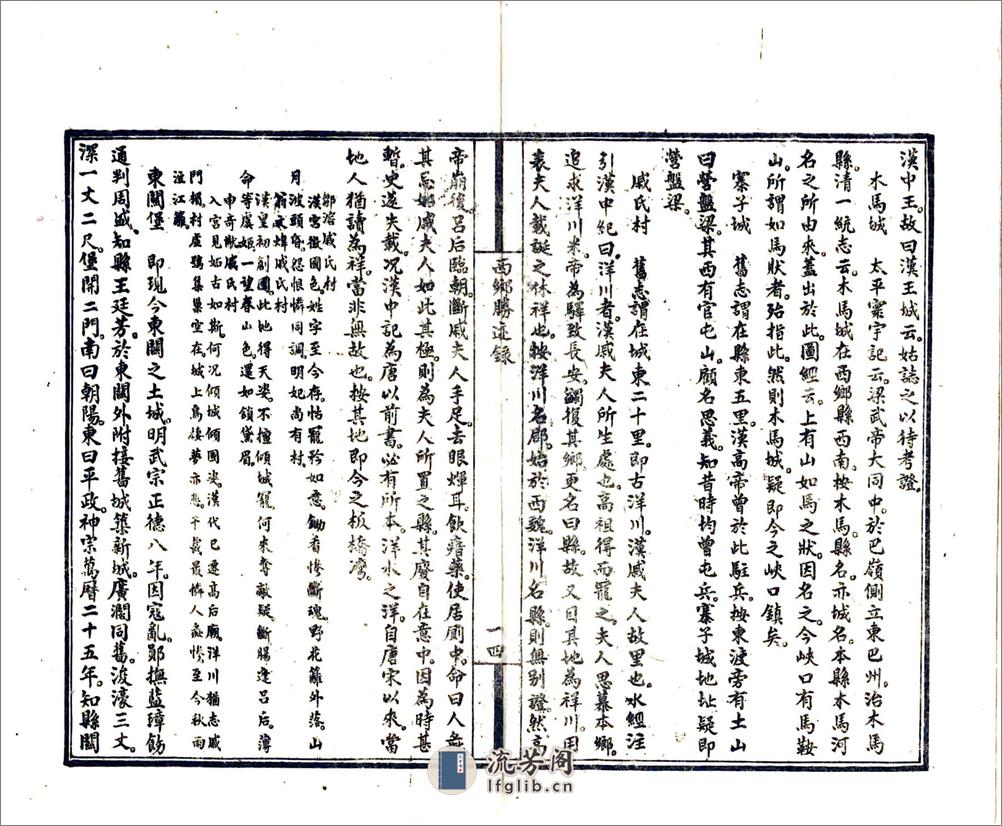 漢中王。故曰漢王城云。姑誌之以待考證。
木馬城　太平寰宇記云。梁武帝大同中。於巴嶺側立東巴州。治木馬
縣。清一統志云。木馬城在西鄉縣西南。按木馬縣名。亦城名。本縣木馬河
名之所由來。蓋出於此。圖經云。上有山如馬之狀。因名之。今峽口有馬鞍
山。所謂如馬狀者。殆指此。然則木馬城。疑即今之峽口鎮矣。
寨子城　舊志謂在縣東五里。漢高帝曾於此駐兵。按東渡旁有土山
曰營盤梁。其西有官屯山。顧名思義。知昔時均曾屯兵。寨子城地址。疑即
營盤梁。
戚氏村　舊志謂在城東二十里。即古洋川。漢戚夫人故里也。水經注
引漢中紀曰。洋川者。漢戚夫人所生處也。高祖得而寵之。夫人思慕本鄉。
追求洋川米。帝為驛致長安。蠲復其鄉。更名曰縣。故又目其地為祥川。用
表夫人載誕之休祥也。按洋川名郡。始於西魏。洋川名縣。則無別證。然高
西鄉勝蹟錄
一四
帝崩後。呂后臨朝。斷戚夫人手足。去眼煇耳。飲瘖藥。使居廁中。命曰人彘
其忌妒戚夫人如此其極。則為夫人所置之縣。其廢自在意中。因為時甚
暫。史遂失載。况漢中記為唐以前書。必有所本。洋水之洋。自唐宋以來。當
地人猶讀為祥。當非無故也。按其地即今之板橋灣。
鄒溶戚氏村
漢宮徵國色。姓字至今存。怙寵矜如意。鋤看慘斷魂。野花籬外落。山
月波頭昏。怨恨憐同調。明妃尚有村。
戚氏村
漢皇初創國。此地得天姿。不擅傾城寵。何來奪敵疑。斷腸逢呂后。薄
命等虞姬。一望春山色。還如鎖黛眉。
戚氏村
入宮見妬古如斯。何况傾城傾國姿。漢代已遷高后廟。洋川猶志戚
門楣。村盧鴉集巢空在。城上烏棲夢亦悲。千載最憐人彘慘。至今秋雨
泣江蘺
東關堡　即現今東關之土城。明武宗正德八年。因寇亂。鄖撫藍璋飭
通判周盛。知縣王廷芳。於東關外附接舊城築新城。廣濶同舊。浚濠三丈。
深一丈二尺。堡開二門。南曰朝陽。東曰平政。神宗萬曆二十五年。知縣關
流芳阁
lfglib.cn